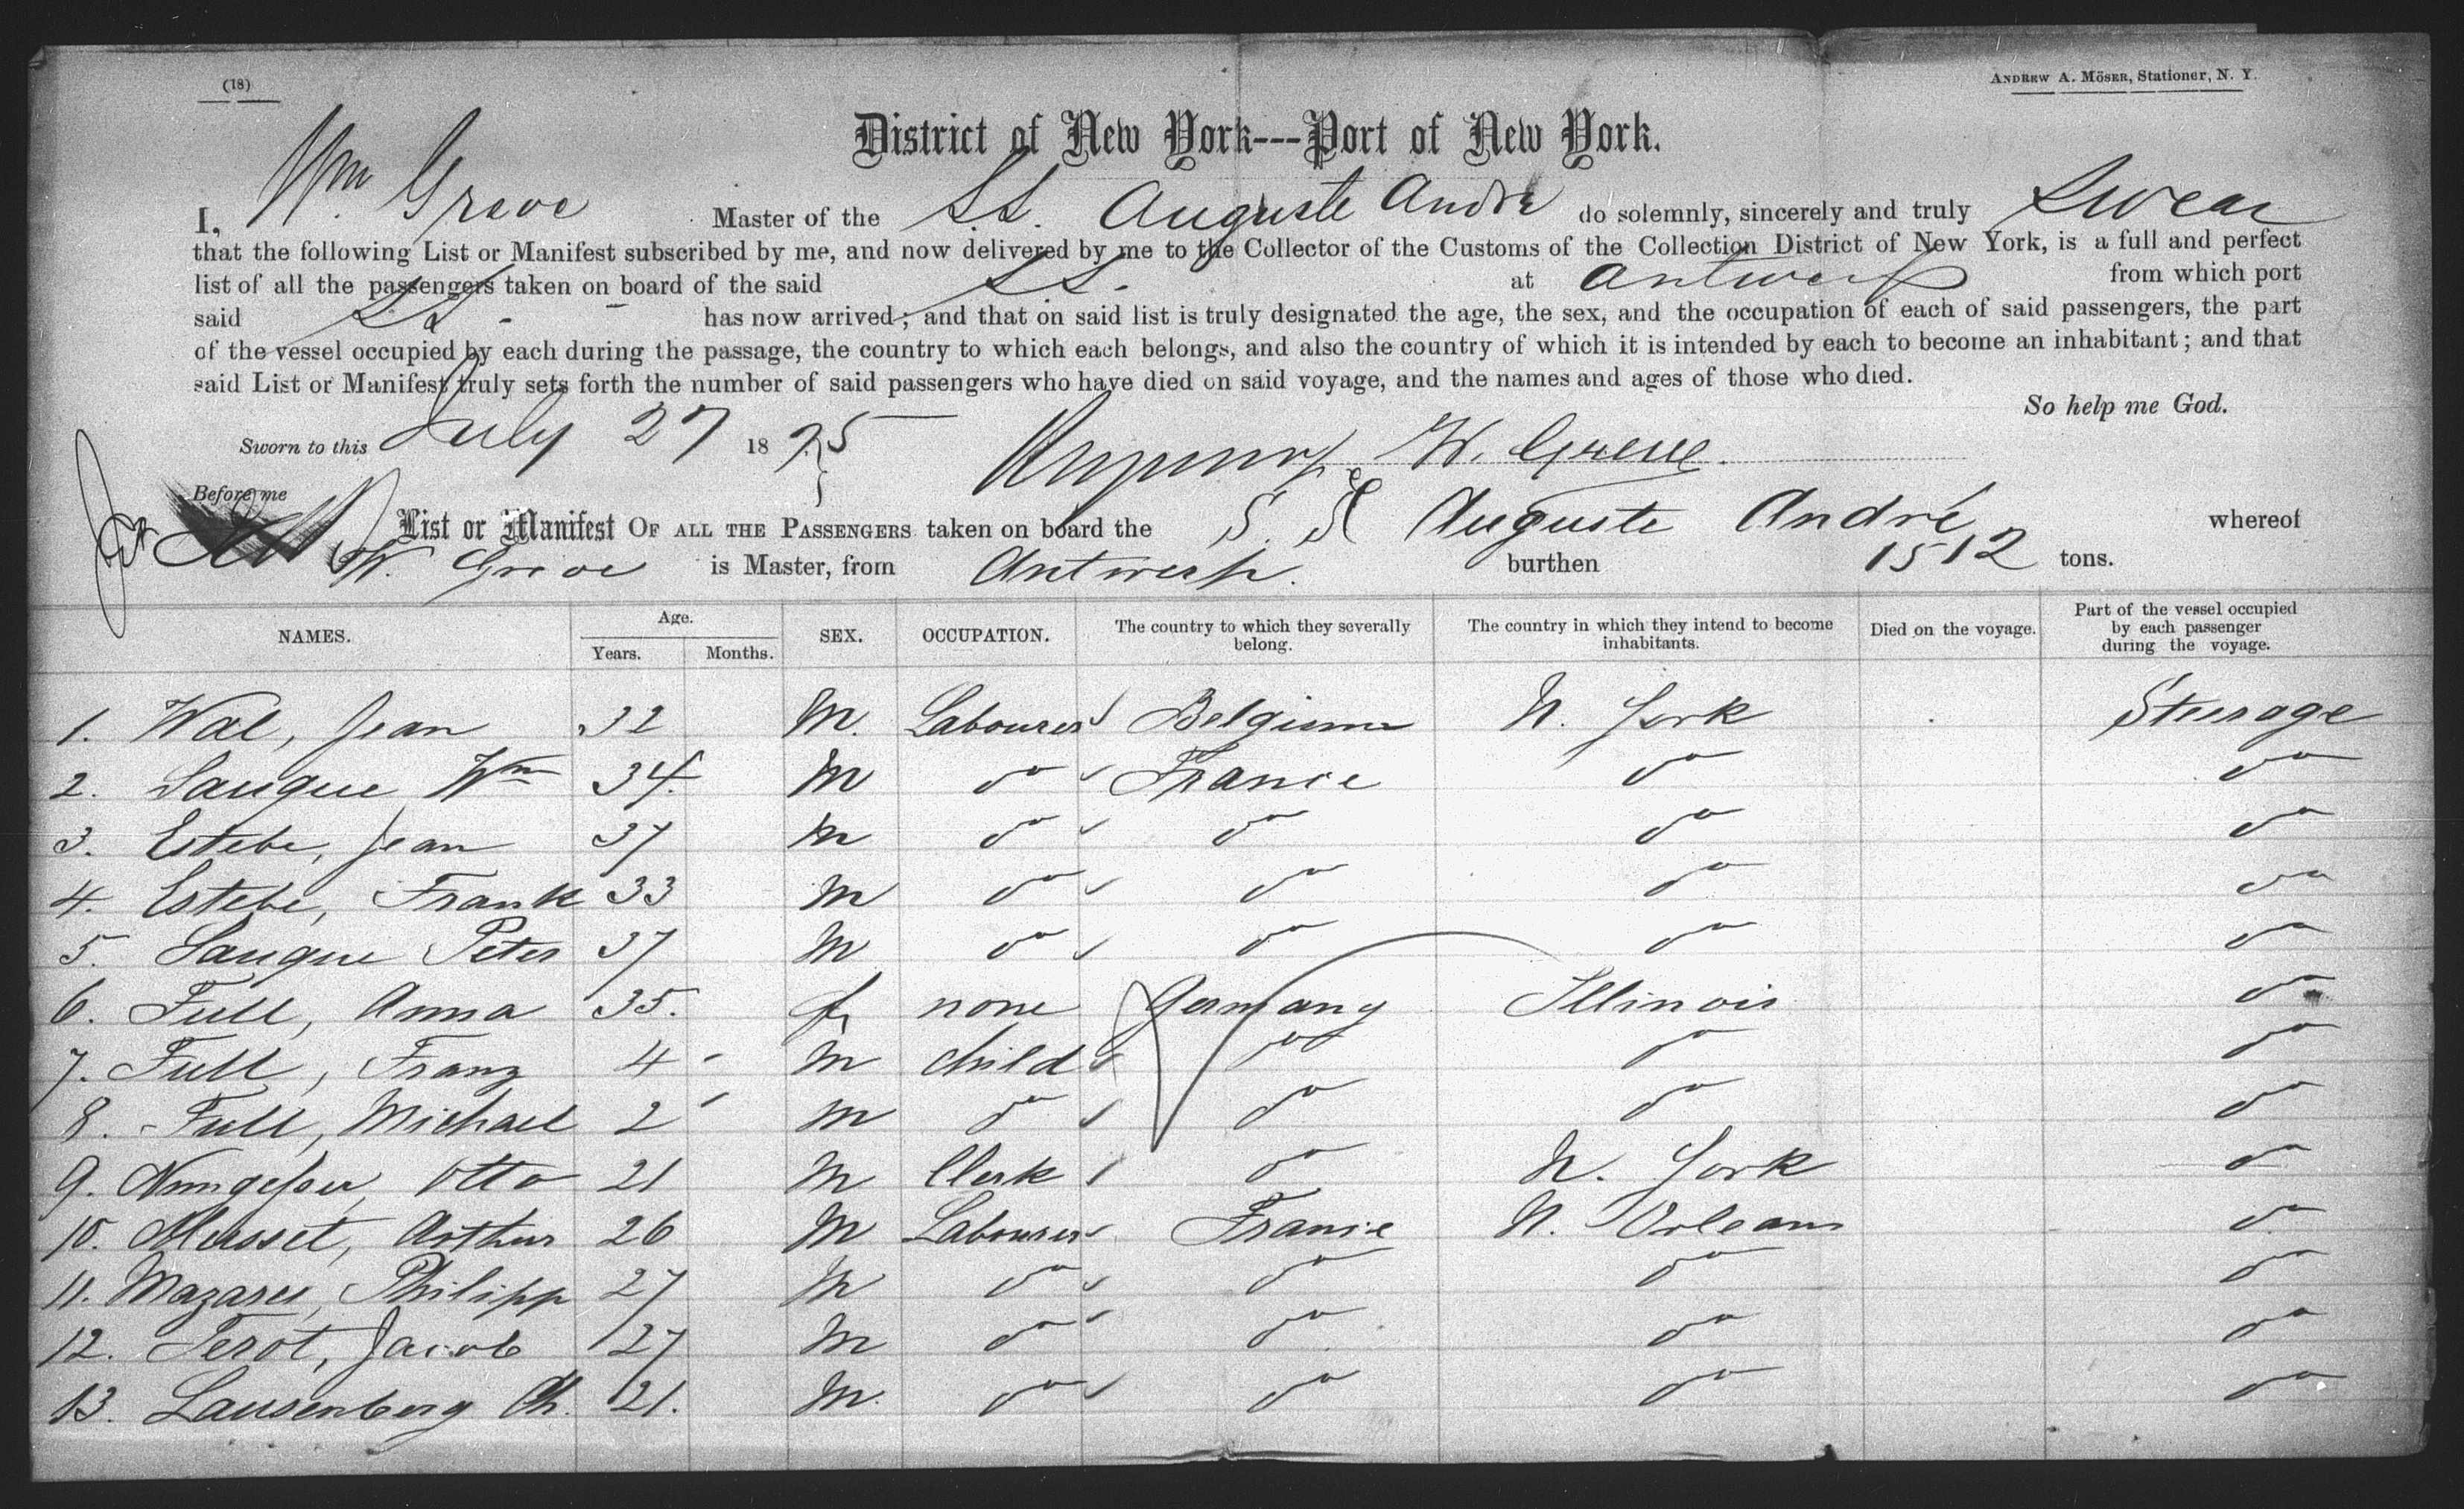 (18)
ANDREW A. MÖSER, Stationer, N. Y.
District of New York---Port of New York.
I, Wm Grove Master of the S.S. Auguste André do solemnly, sincerely and truly Swear
that the following List or Manifest subscribed by me, and now delivered by me to the Collector of the Customs of the Collection District of New York, is a full and perfect
list of all the passengers taken on board of the said S.S. at Antwerp from which port
said S.S. has now arrived; and that on said list is truly designated the age, the sex, and the occupation of each of said passengers, the part
of the vessel occupied by each during the passage, the country to which each belongs, and also the country of which it is intended by each to become an inhabitant; and that
said List or Manifest truly sets forth the number of said passengers who have died on said voyage, and the names and ages of those who died.
So help me God.
Sworn to this July 27 1875 W.
Before me
List or Manifest OF ALL THE PASSENGERS taken on board the S. S. Auguste André whereof
W. Grove is Master, from Antwerp. burthen 1512 tons.
NAMES. Age. Years. Months. SEX. OCCUPATION. The country to which they severally belong. The country in which they intend to become inhabitants. Died on the voyage. Part of the vessel occupied by each passenger during the voyage.
1. Wal, Jean 32 M. Labourer Belgium N. York Steerage
2. Saugue Wm 34. M do France do do
3. Estebe, Jean 37 M do do do do
4. Estebe, Frank 33 M do do do do
5. Saugue Peter 37 M do do do do
6. Full, Anna 35. f. none Germany Illinois do
7. Full, Franz 4 - M child do do do
8. - Full, Michael 2 - M do do do do
9. Otto 21 M Clerk do N. York do
10. Arthur 26 M Labourer France N. Orleans do
11. Philipp 27 M do do do do
12. Terot, Jacob 27 M do do do do
13. Lausenberg Ch. 21. M. do do do do